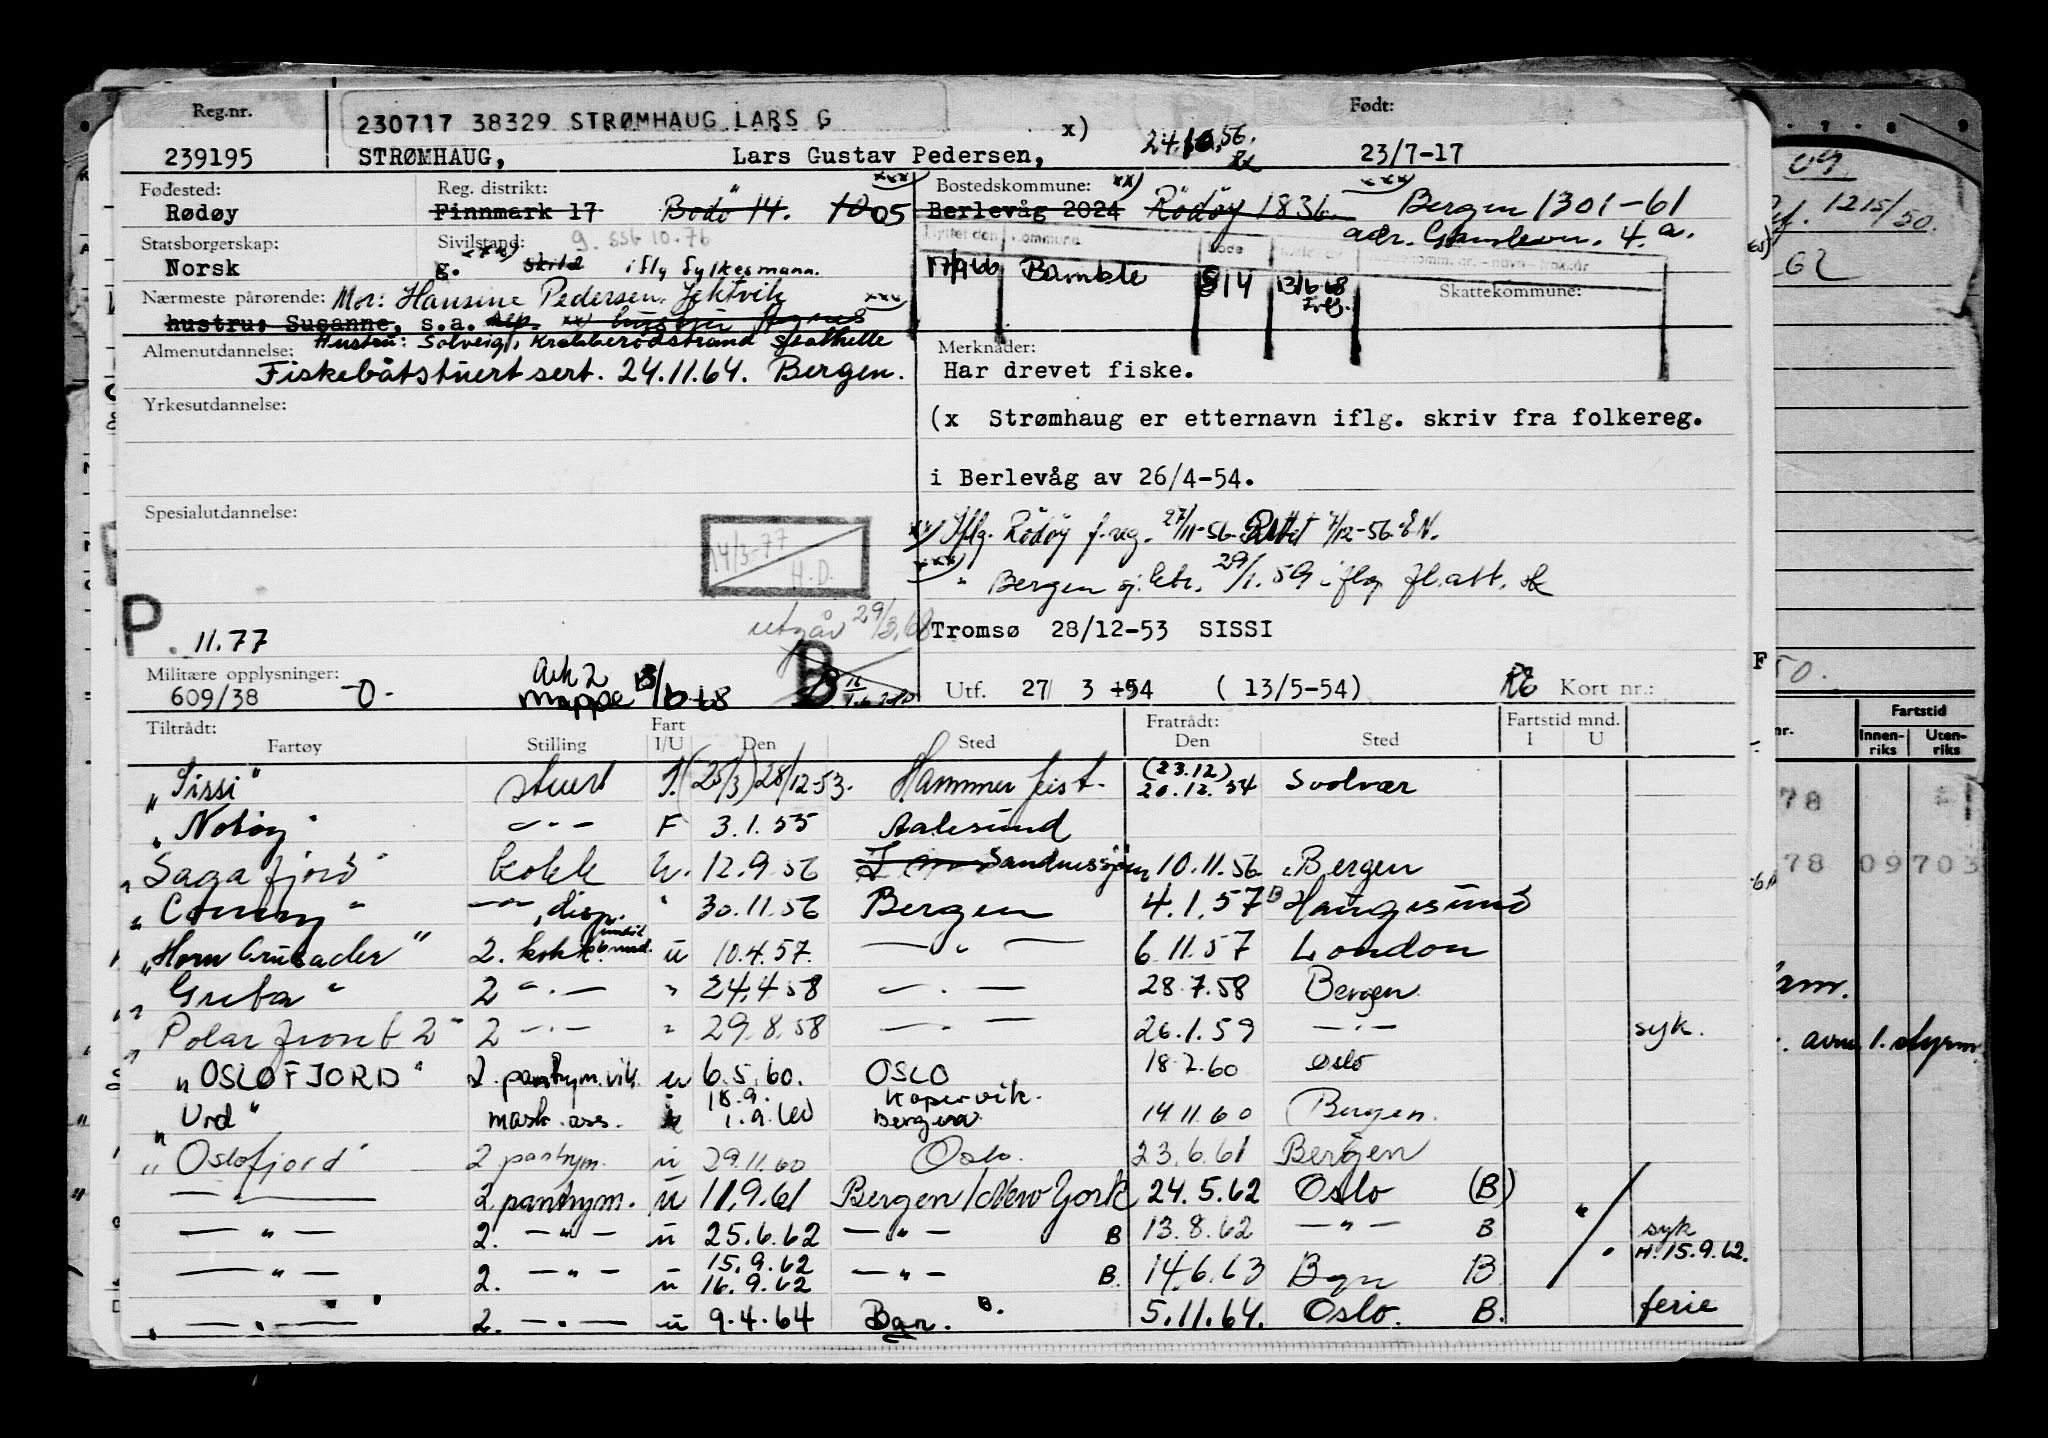 Reg.nr. Født:
230717 38329 STRØMHAUG LARS G
x) 24.10.56.
239195 STRØMHAUG, Lars Gustav Pedersen, 23/7-17
Fødested: Reg. distrikt: xxx) Bostedskommune: xx) xxx)
Rødøy Finnmark 17 Bodö 14. 1005 Berlevåg 2024 Rödöy 1836 Bergen 1301-61
Statsborgerskap: Sivilstand: g. sst 10.76 adr. 4.a.
Norsk g. xxx) Skild iflg fylkesmann. 17/9 66 Bamble 814 13/6-68
Nærmeste pårørende: Mor: Hansine Pedersen, Jektvik Skattekommune:
hustru: Susanne, s.a. xx) xxx)
Hustru: Solveig, Krabberødstrand Stathelle
Almenutdannelse: Merknader:
Fiskebåtstuert sert. 24.11.64. Bergen. Har drevet fiske.
Yrkesutdannelse:
(x Strømhaug er etternavn iflg. skriv fra folkereg.
i Berlevåg av 26/4-54.
Spesialutdannelse:
xx) Iflg. Rödöy f.reg. 27/11-56. Rettet 7/12-56. E N.
14/3-77 H.D.
xxx) " Bergen 29/1.59 iflg fl.att.
P 11.77 utgår 29/3,68 Tromsø 28/12-53 SISSI
Militære opplysninger: Ark 2 B
609/38 -0- Mappe 13/6-68 Utf. 27 3 54 ( 13/5-54) Kort nr.:
Tiltrådt: Fart Fratrådt: Fartstid mnd.
Fartøy Stilling I/U Den Sted Den Sted I U
"Sissi" stuert (25/3) 28/12-53. Hammerfest. (23.12) 20.12.54 Svolvær
"Notöy" -"- F 3.1.55 Aalesund
"Sagafjord" kokk U. 12.9.56 Sandnessjöen 10.11.56 Bergen
"Conny" -"-, disp. " 30.11.56 Bergen 4.1.57 Haugesund
"Horn Crusader" 2. kokk u 10.4.57. -"- 6.11.57 London
"Greba" 2 -"- " 24.4.58 -"- 28.7.58 Bergen
"Polarfront 2" 2 -"- " 29.8.58 -"- 26.1.59 -"- syk.
"OSLOFJORD" 2. pantrym. vik. u 6.5.60. OSLO 18.7.60 Oslo
"Urd" mask. ass. 18.9. 1.9.60 Kopervik. Bergen 14.11.60 Bergen.
"Oslofjord" 2 pantrym. u 29.11.60 Oslo. 23.6.61 Bergen
-"- 2 pantrym. u 11.9.61 Bergen/New York 24.5.62 Oslo (B)
-"- 2. -"- u 25.6.62 -"- B 13.8.62 -"- B syk
-"- 2. -"- u 15.9.62 16.9.62 -"- B. 14.6.63 Bgn B H. 15.9.62.
-"- 2. -"- u 9.4.64 Bgn. B. 5.11.64. Oslo. B. ferie
09
1215/50.
62
50.
Fartstid
Innenriks Utenriks
78
78 09703
1. styrm.